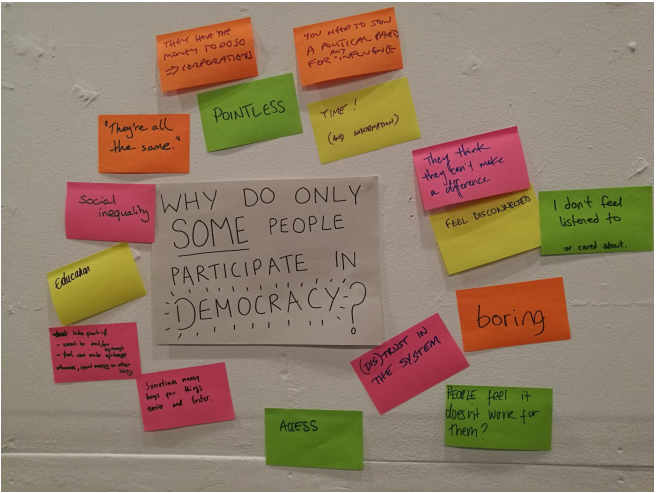 THEY HAVE THE
MONEY TO DO SO
⇒ CORPORATIONS
YOU NEED TO JOIN
A POLITICAL PARTY
FOR ANY "INFLUENCE"
POINTLESS
TIME!
(AND INFORMATION)
"They're all
the same."
They think
they can't make
a difference
Social
inequality
WHY DO ONLY
SOME PEOPLE
PARTICIPATE IN
DEMOCRACY?
FEEL DISCONNECTED
I don't feel
listened to
or cared about.
Education
boring
take part if
- want to and/or
- feel can make a change
otherwise, spend energy on other
things
(DIS)TRUST IN
THE SYSTEM
Sometimes money
buys you things
easier and faster.
PEOPLE feel it
doesn't work for
them?
ACCESS